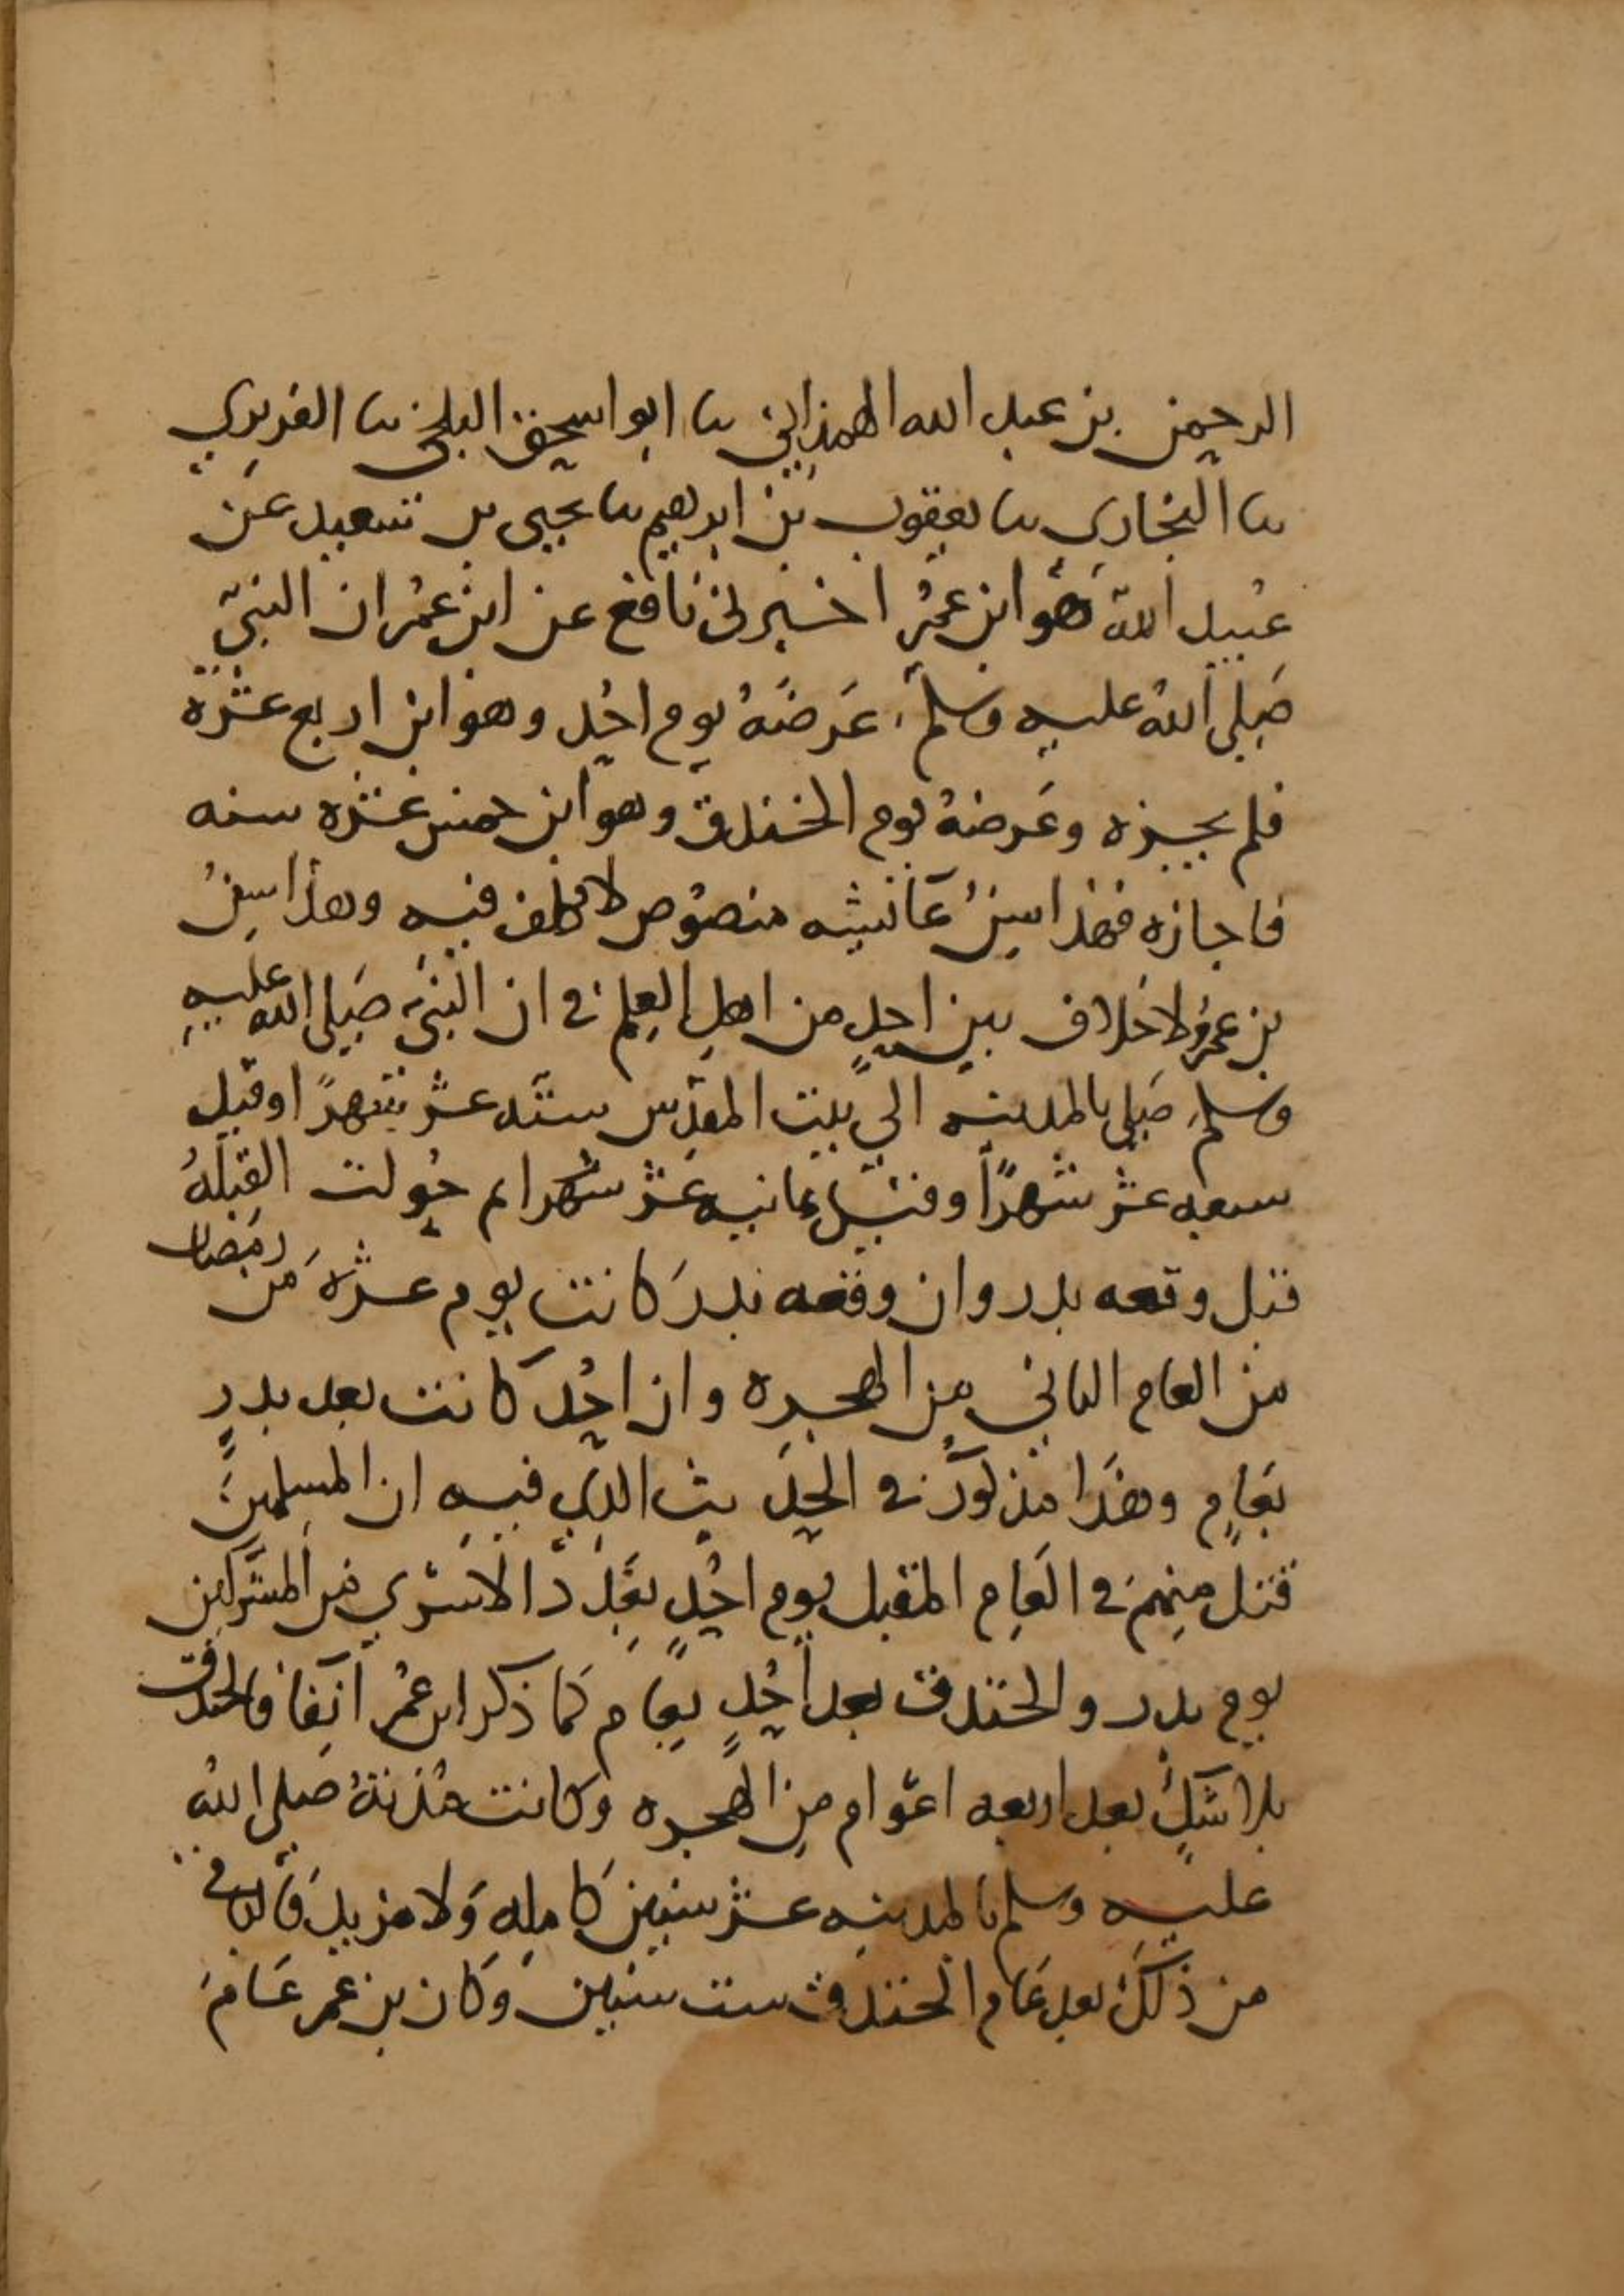 الرحمن بن عبد الله الهمذاني ثنا ابو اسحق البلخي ثنا الفربري
ثنا البخاري ثنا يعقوب بن ابرهيم ثنا يحيى بن سعيد عن
عبيد الله هو ابن عمر اخبرني نافع عن ابن عمر ان النبي
صلى الله عليه وسلم عرضه يوم احد وهو ابن اربع عشره
فلم يجيزه وعرضه يوم الخندق وهو ابن خمس عشره سنه
فاجازه فهذا سن عائشه منصوص لا تكلف فيه وهذا سن
بن عمر ولا خلاف بين احد من اهل العلم في ان النبي صلى الله عليه
وسلم صلى بالمدينه الى بيت المقدس سته عشر شهرا او قيل
سبعه عشر شهرا وقيل ثمانيه عشر شهرا ثم حولت القبله
قبل وقعه بدر وان وقعه بدر كانت يوم عشره من رمضان
من العام الثاني من الهجره وان احد كانت بعد بدر
بعام وهذا مذكور في الحديث الذي فيه ان المسلمين
قتل منهم في العام المقبل يوم احد بعدد الاسرى من المشركين
يوم بدر والخندق بعد احد بعام كما ذكر ابن عمر آنفا فالخندق
بلا شك بعد اربعه اعوام من الهجره وكانت مدته صلى الله
عليه وسلم بالمدينه عشر سنين كامله ولا مزيد فالباقي
من ذلك بعد عام الخندق ست سنين وكان بن عمر عام